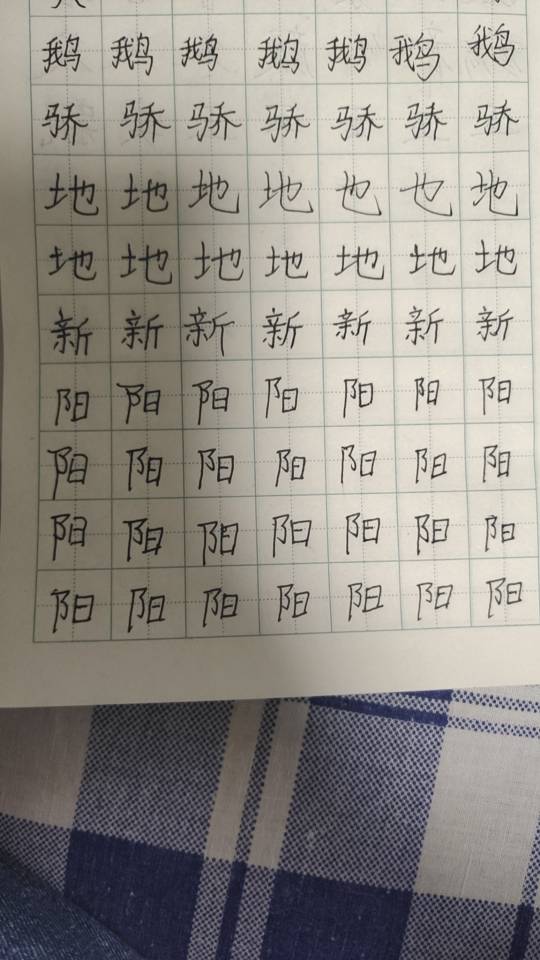 鹅鹅鹅鹅鹅鹅鹅
骄骄骄骄骄骄骄
地地地地也也地
地地地地地地地
新新新新新新新
阳阳阳阳阳阳阳
阳阳阳阳阳阳阳
阳阳阳阳阳阳阳
阳阳阳阳阳阳阳